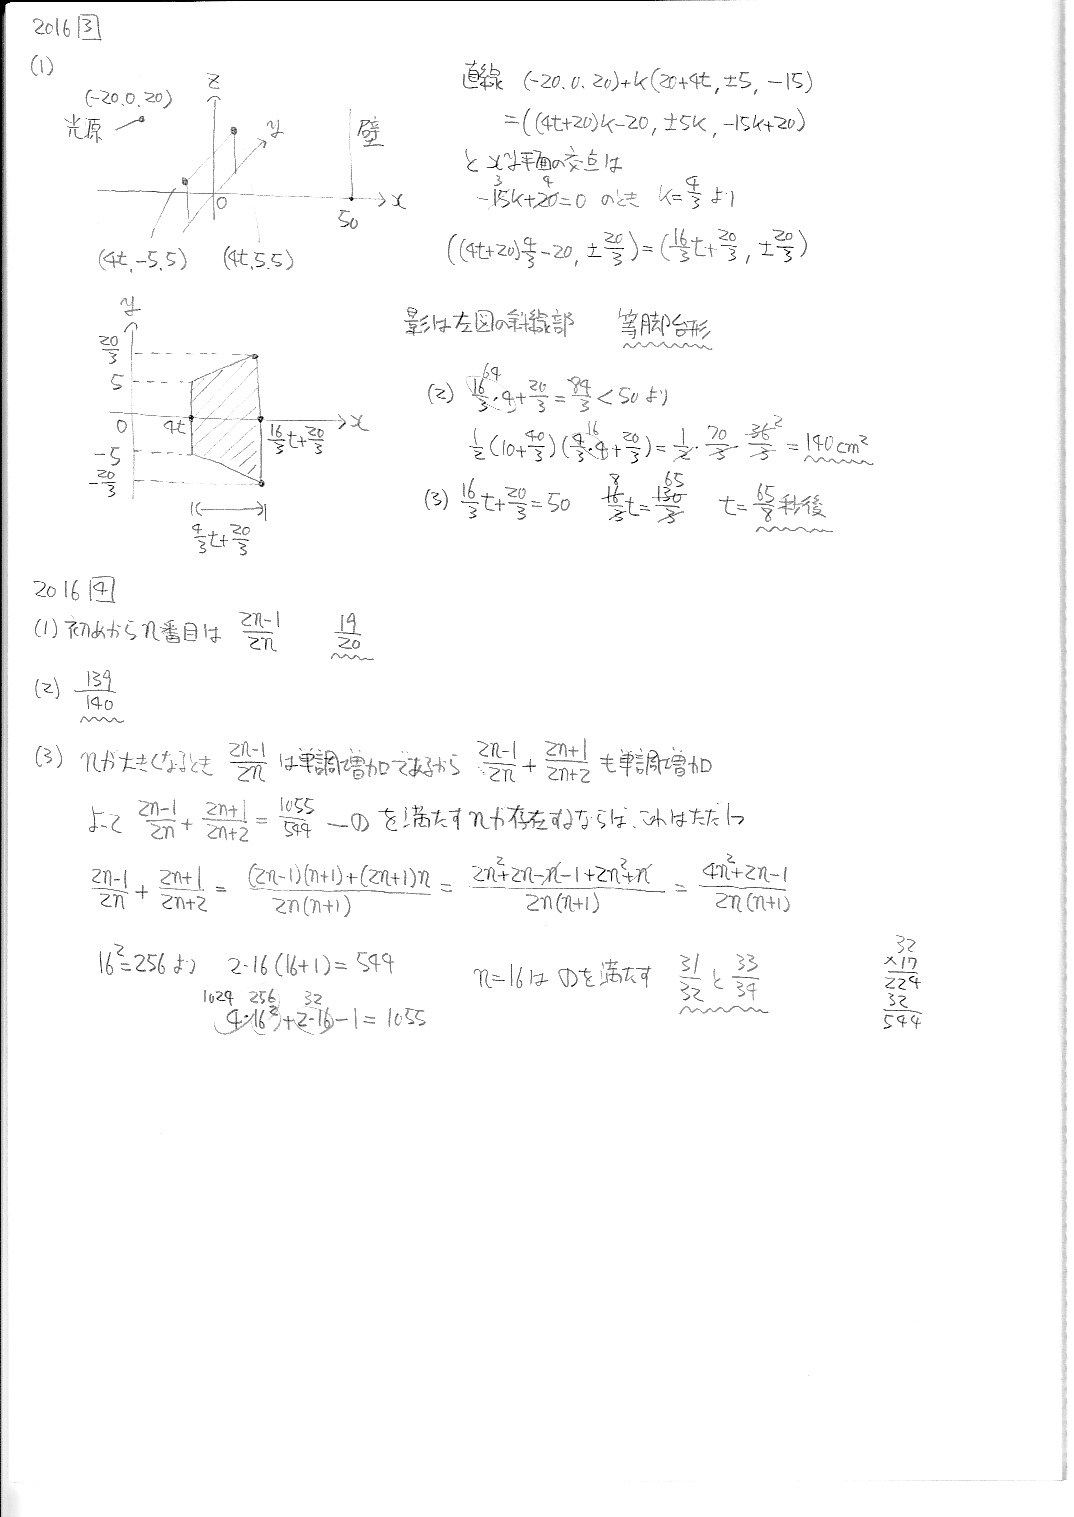 2016 3
(1)
(-20.0.20)
光原
z
y
壁
x
0
50
(4t,-5,5) (4t,5,5)
直線 (-20.0.20)+k(20+4t, ±5, -15)
=((4t+20)k-20, ±5k, -15k+20)
と xy平面の交点は
-15k+20=0 のとき k=4/3 より
3 4
((4t+20)4/3-20, ±20/3)=(16/3t+20/3, ±20/3)
y
20/3
5
0
-5
-20/3
4t
16/3t+20/3
x
4/3t+20/3
影は左図の斜線部 等脚台形
(2) 16/3・4+20/3=84/3<50より
64
1/2(10+40/3)(4/3・4+20/3)=1/2・70/3・36/3=140cm²
16 2
(3) 16/3t+20/3=50 16/3t=130/3 t=65/8秒後
8 65
2016 4
(1) 初めからn番目は 2n-1/2n 19/20
(2) 139/140
(3) nが大きくなるとき 2n-1/2n は単調増加であるから 2n-1/2n + 2n+1/2n+2 も単調増加
よって 2n-1/2n + 2n+1/2n+2 = 1055/544 —の を満たすnが存在するならば、これはただ1つ
2n-1/2n + 2n+1/2n+2 = (2n-1)(n+1)+(2n+1)n/2n(n+1) = 2n²+2n-n-1+2n²+n/2n(n+1) = 4n²+2n-1/2n(n+1)
16²=256より 2・16(16+1)=544
1024 256 32
4・16²+2・16-1=1055
n=16は のを満たす 31/32 と 33/34
32
×17
224
32
544